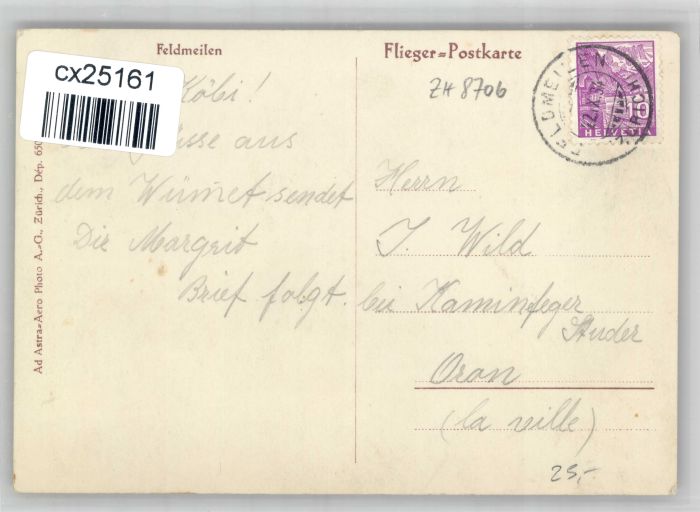 Feldmeilen
Flieger=Postkarte
cx25161
ZH 8706
FELDMEILEN
10
HELVETIA
Köbi!
aus
dem Wümet sendet
Die Margrit
Brief folgt.
Herrn
J. Wild
bei Kaminfeger
Studer
Oron
(la ville)
25,-
Ad Astra=Aero Photo A.=G., Zürich., Dép. 650